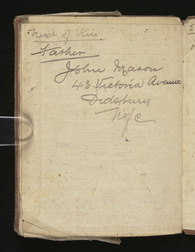 Next of Kin.
Father
John Mason
43 Victoria Avenue
Didsbury
M/c